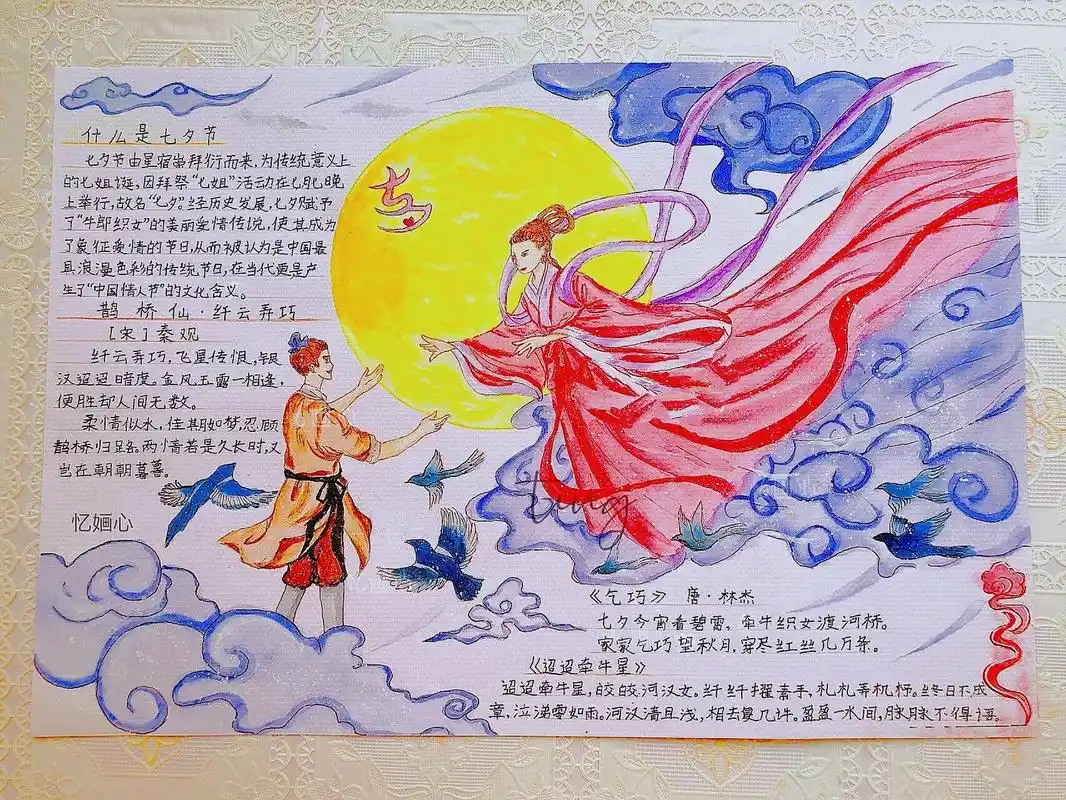 什么是七夕节
七夕节由星宿崇拜衍而来,为传统意义上
的七姐诞,因拜祭“七姐”活动在七月七晚
上举行,故名“七夕”。经历史发展,七夕赋予
了“牛郎织女”的美丽爱情传说,使其成为
了象征爱情的节日,从而被认为是中国最
具浪漫色彩的传统节日,在当代更是产
生了“中国情人节”的文化含义。
鹊桥仙·纤云弄巧
[宋]秦观
纤云弄巧,飞星传恨,银
汉迢迢暗度。金风玉露一相逢,
便胜却人间无数。
柔情似水,佳期如梦,忍顾
鹊桥归路。两情若是久长时,又
岂在朝朝暮暮。
忆婳心
七夕
ting
《乞巧》 唐·林杰
七夕今宵看碧霄。牵牛织女渡河桥。
家家乞巧望秋月,穿尽红丝几万条。
《迢迢牵牛星》
迢迢牵牛星,皎皎河汉女。纤纤擢素手,札札弄机杼。终日不成
章,泣涕零如雨。河汉清且浅,相去复几许。盈盈一水间,脉脉不得语。